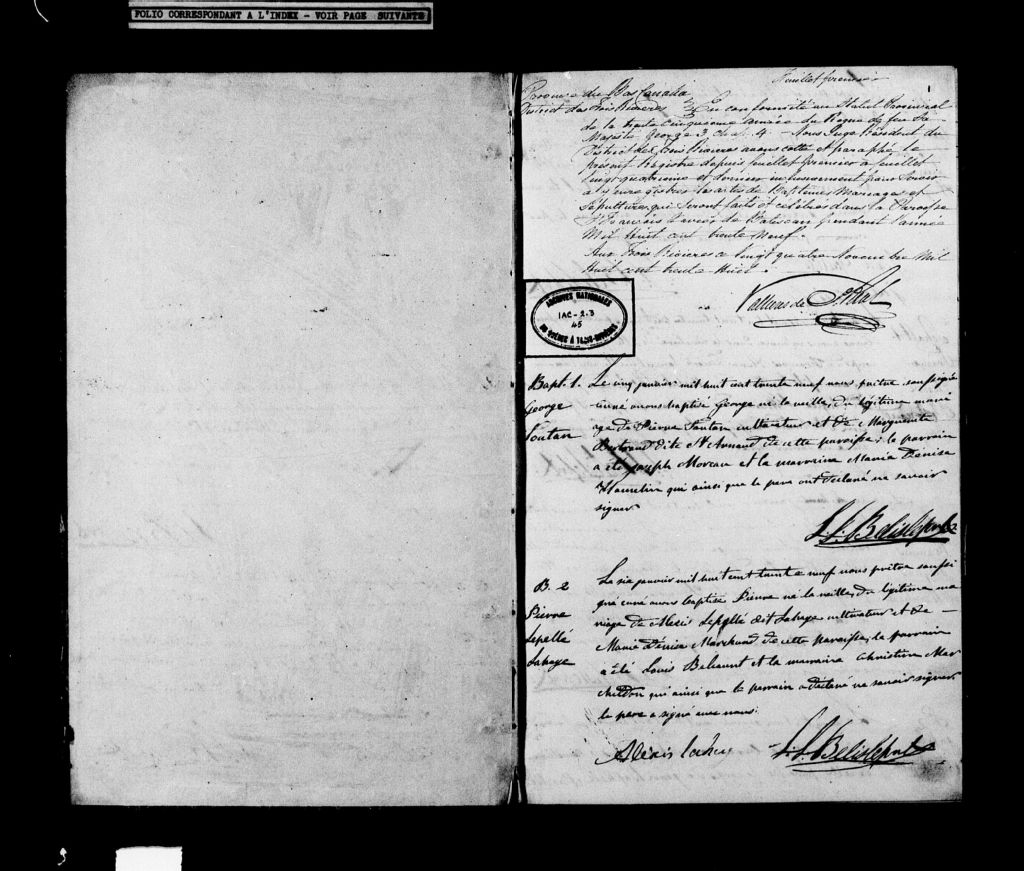 FOLIO CORRESPONDANT A L'INDEX - VOIR PAGE SUIVANTE
Feuillet premier
1
Province du Bas Canada
District des Trois Rivieres En conformité au Statut Provincial
de la trente cinquieme année du Regne de feu Sa
Majesté George 3 Chap. 4 - Nous Juge Résident du
District des Trois Rivieres avons cotté et paraphé le
present Registre depuis feuillet premier a feuillet
vingt quatrieme et dernier inclusivement pour servir
a y enregistrer les actes de Baptemes Mariages et
Sepultures qui seront faits et célébrés dans la Paroisse
St François Xavier de Batiscan pendant l'année
Mil Huit cent trente neuf.
Aux Trois Rivieres ce vingt quatre Novembre Mil
Huit cent trente Huit.
Vallieres de St. Réal
ARCHIVES NATIONALES
IAC-2-3
45
DU QUÉBEC À TROIS-RIVIÈRES
Bapt. 1.
George
Toutan
Le cinq janvier mil huit cent trente neuf nous prêtre soussigné
curé avons baptisé George né la veille, du légitime mari
age de Pierre Toutan cultivateur et de Marguerite
Bertrand dite St Arnaud de cette paroisse; le parrain
a été Joseph Moreau et la marraine Marie Denise
Hamelin qui ainsi que le pere ont déclaré ne savoir
signer
L. S. Belisle ptre
B. 2
Pierre
Lepellé
Lahaye
Le six janvier mil huit cent trente neuf nous prêtre soussi
gné curé avons baptisé Pierre né la veille, du légitime ma
riage de Alexis Lepellé dit Lahaye cultivateur et de
Marie Denise Marchand de cette paroisse; le parrain
a été Louis et la marraine Christine Mar
childon qui ainsi que le parrain a déclaré ne savoir signer
le pere a signé avec nous.
Alexis
L. S. Belisle ptre